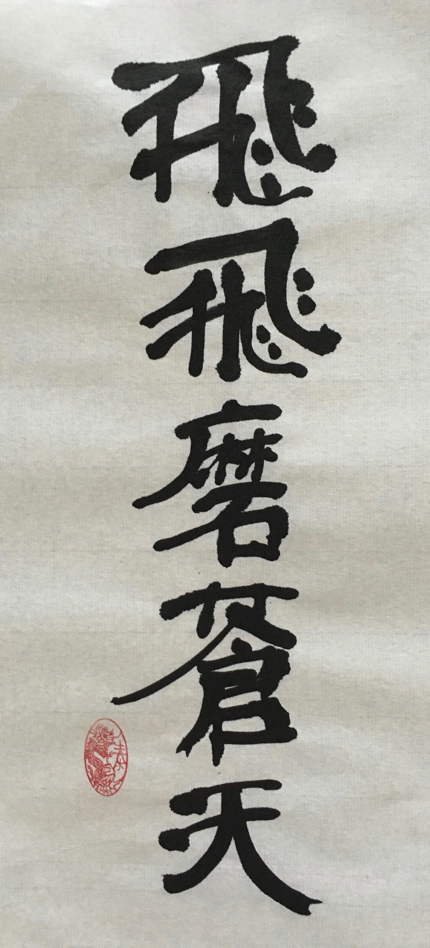 飛飛磨蒼天